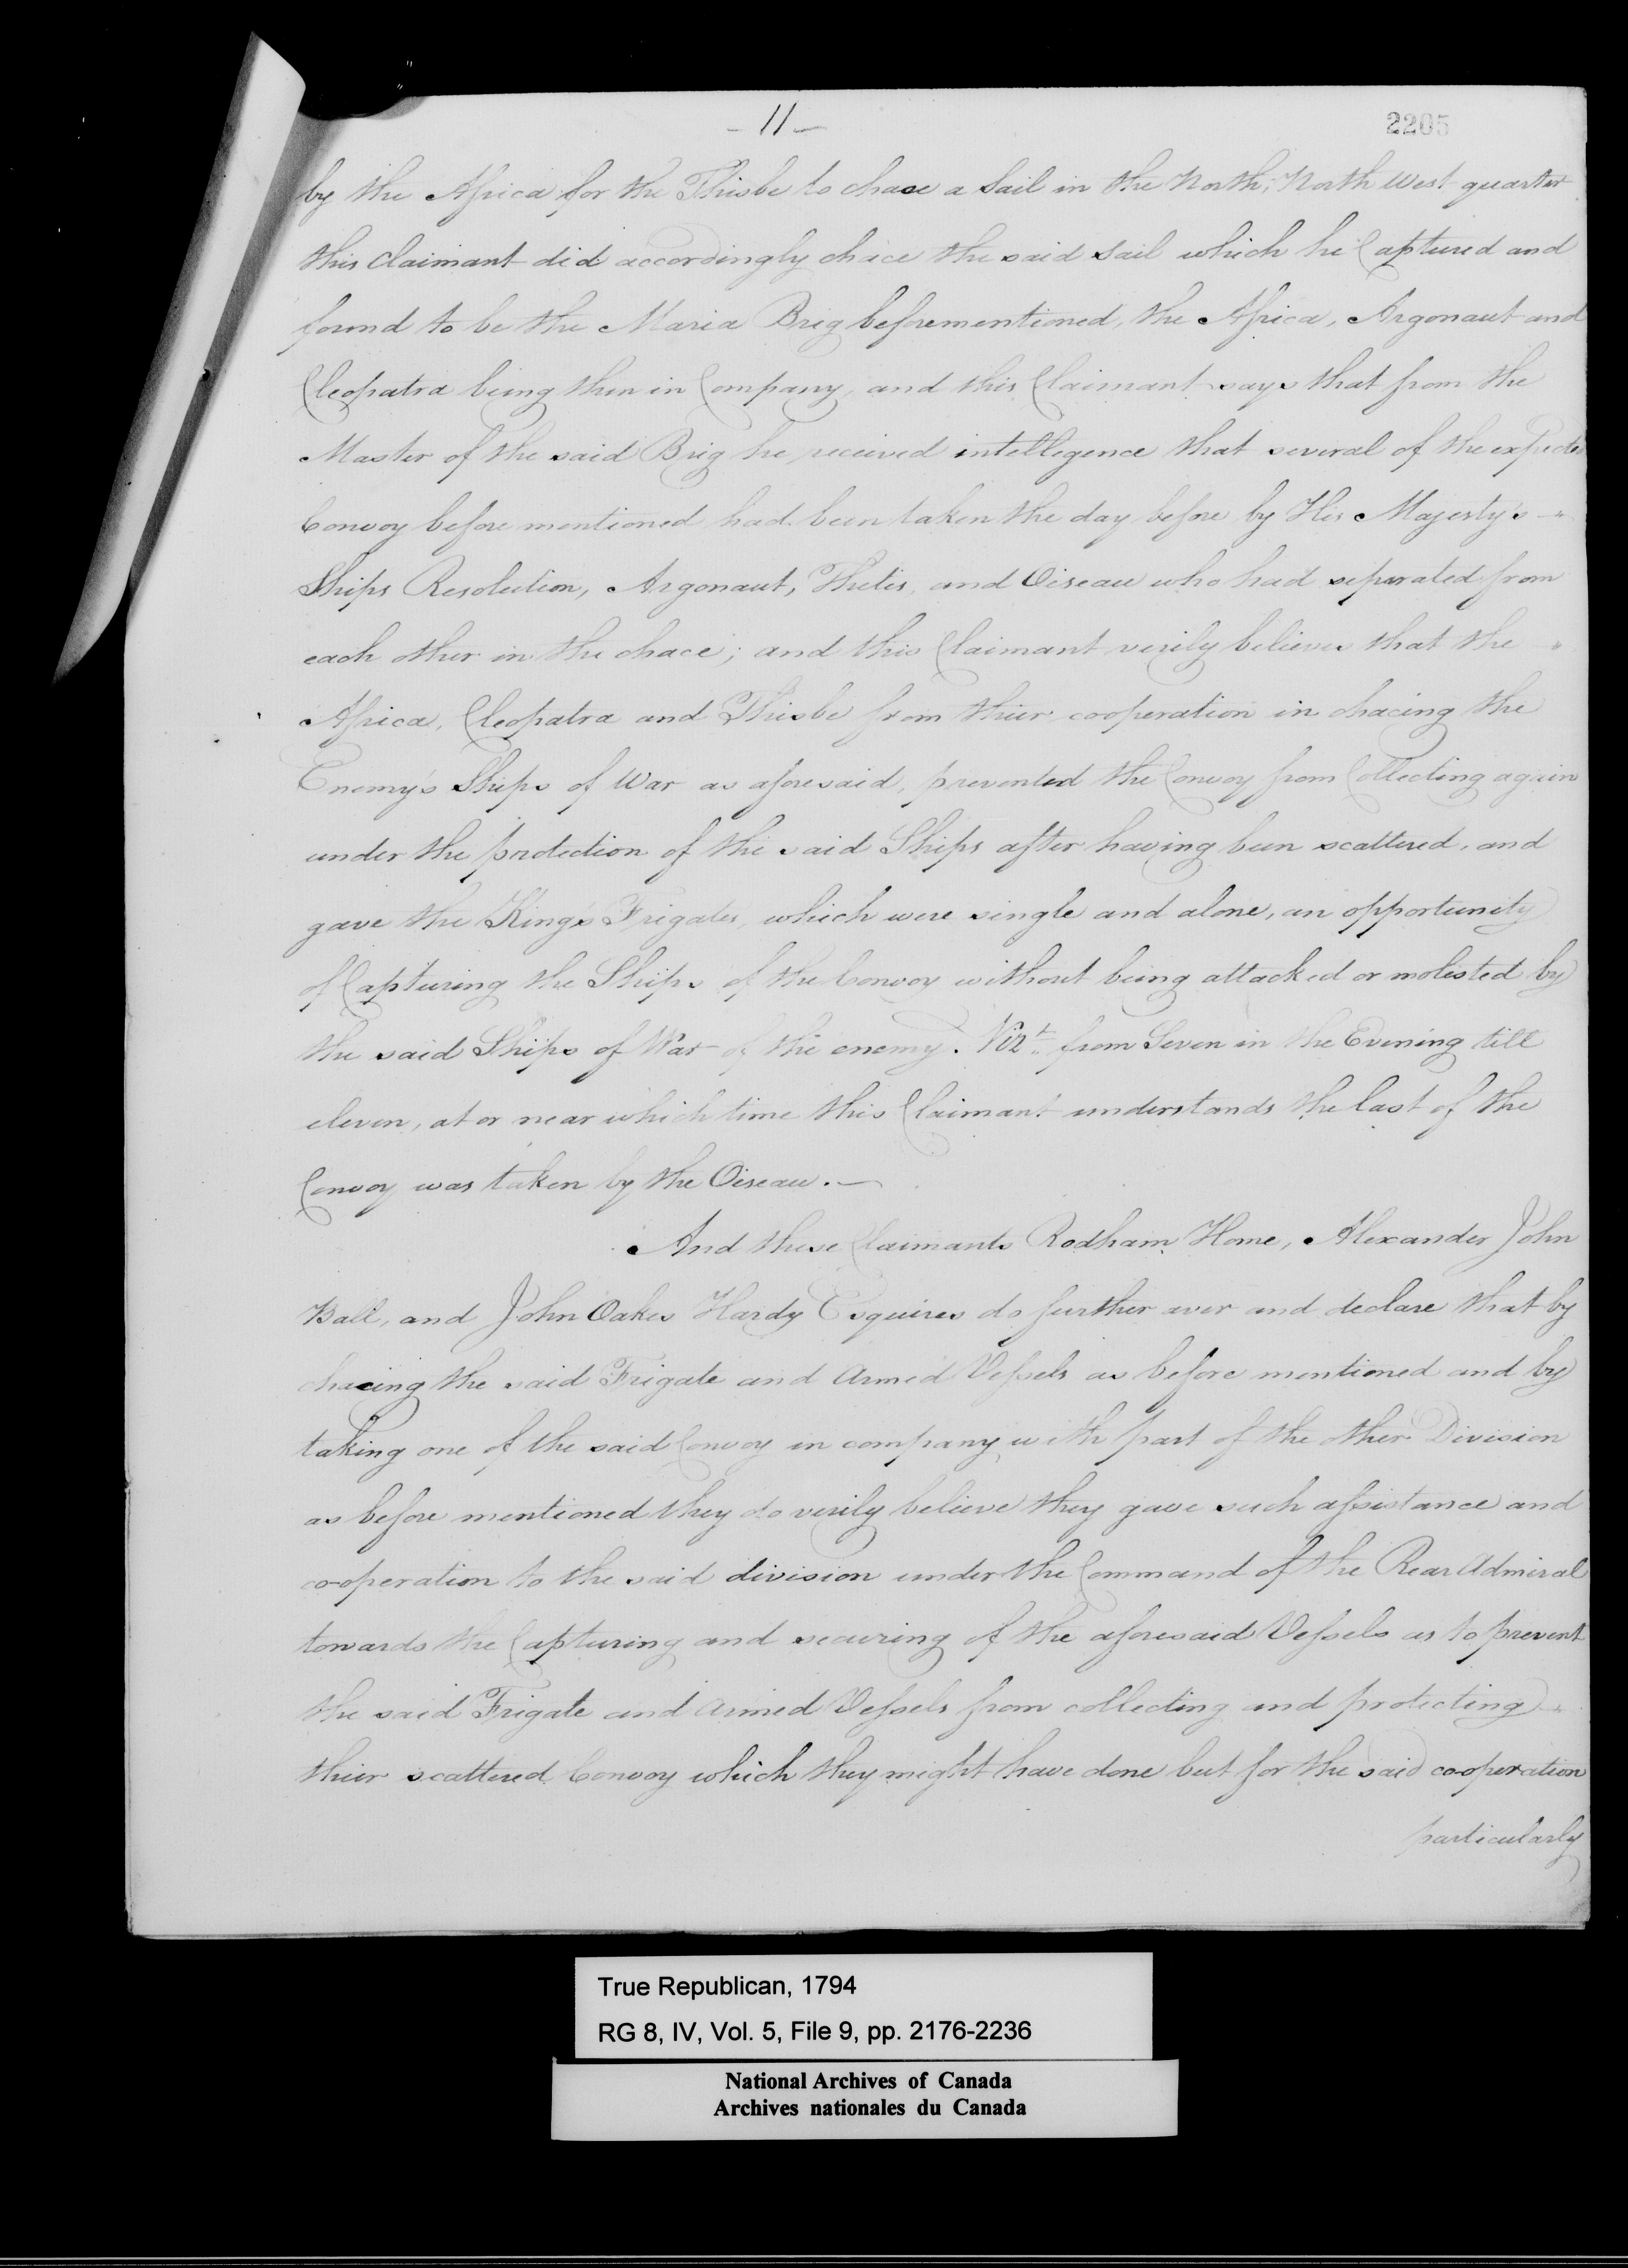 - 11 -
2205
by the Africa for the Thisbe to chace a Sail in the North, North West quarter
this Claimant did accordingly chace the said Sail which he Captured and
found to be the Maria Brig beforementioned, the Africa, Argonaut and
Cleopatra being then in Company, and this Claimant says that from the
Master of the said Brig he received intellegence that several of the expected
Convoy before mentioned had been taken the day before by His Majesty's
Ships Resolution, Argonaut, Thetis, and Oiseau who had separated from
each other in the chace; and this Claimant verily believes that the
Africa, Cleopatra and Thisbe from their cooperation in chacing the
Enemy's Ships of War as aforesaid, prevented the Convoy from Collecting again
under the protection of the said Ships after having been scattered, and
gave the King's Frigates, which were single and alone, an opportunity
of Capturing the Ships of the Convoy without being attacked or molested by
the said Ships of War of the enemy. Vizt. from Seven in the Evening till
eleven, at or near which time this Claimant understands the last of the
Convoy was taken by the Oiseau. —
And these Claimants Rodham Home, Alexander John
Ball, and John Oakes Hardy Esquires do further aver and declare that by
chacing the said Frigate and Armed Vessels as before mentioned and by
taking one of the said Convoy in company with part of the other Division
as before mentioned they do verily believe they gave such assistance and
co-operation to the said division under the Command of the Rear Admiral
towards the Capturing and securing of the aforesaid Vessels as to prevent
the said Frigate and armed Vessels from collecting and protecting
their scattered Convoy which they might have done but for the said cooperation
particularly
True Republican, 1794
RG 8, IV, Vol. 5, File 9, pp. 2176-2236
National Archives of Canada
Archives nationales du Canada